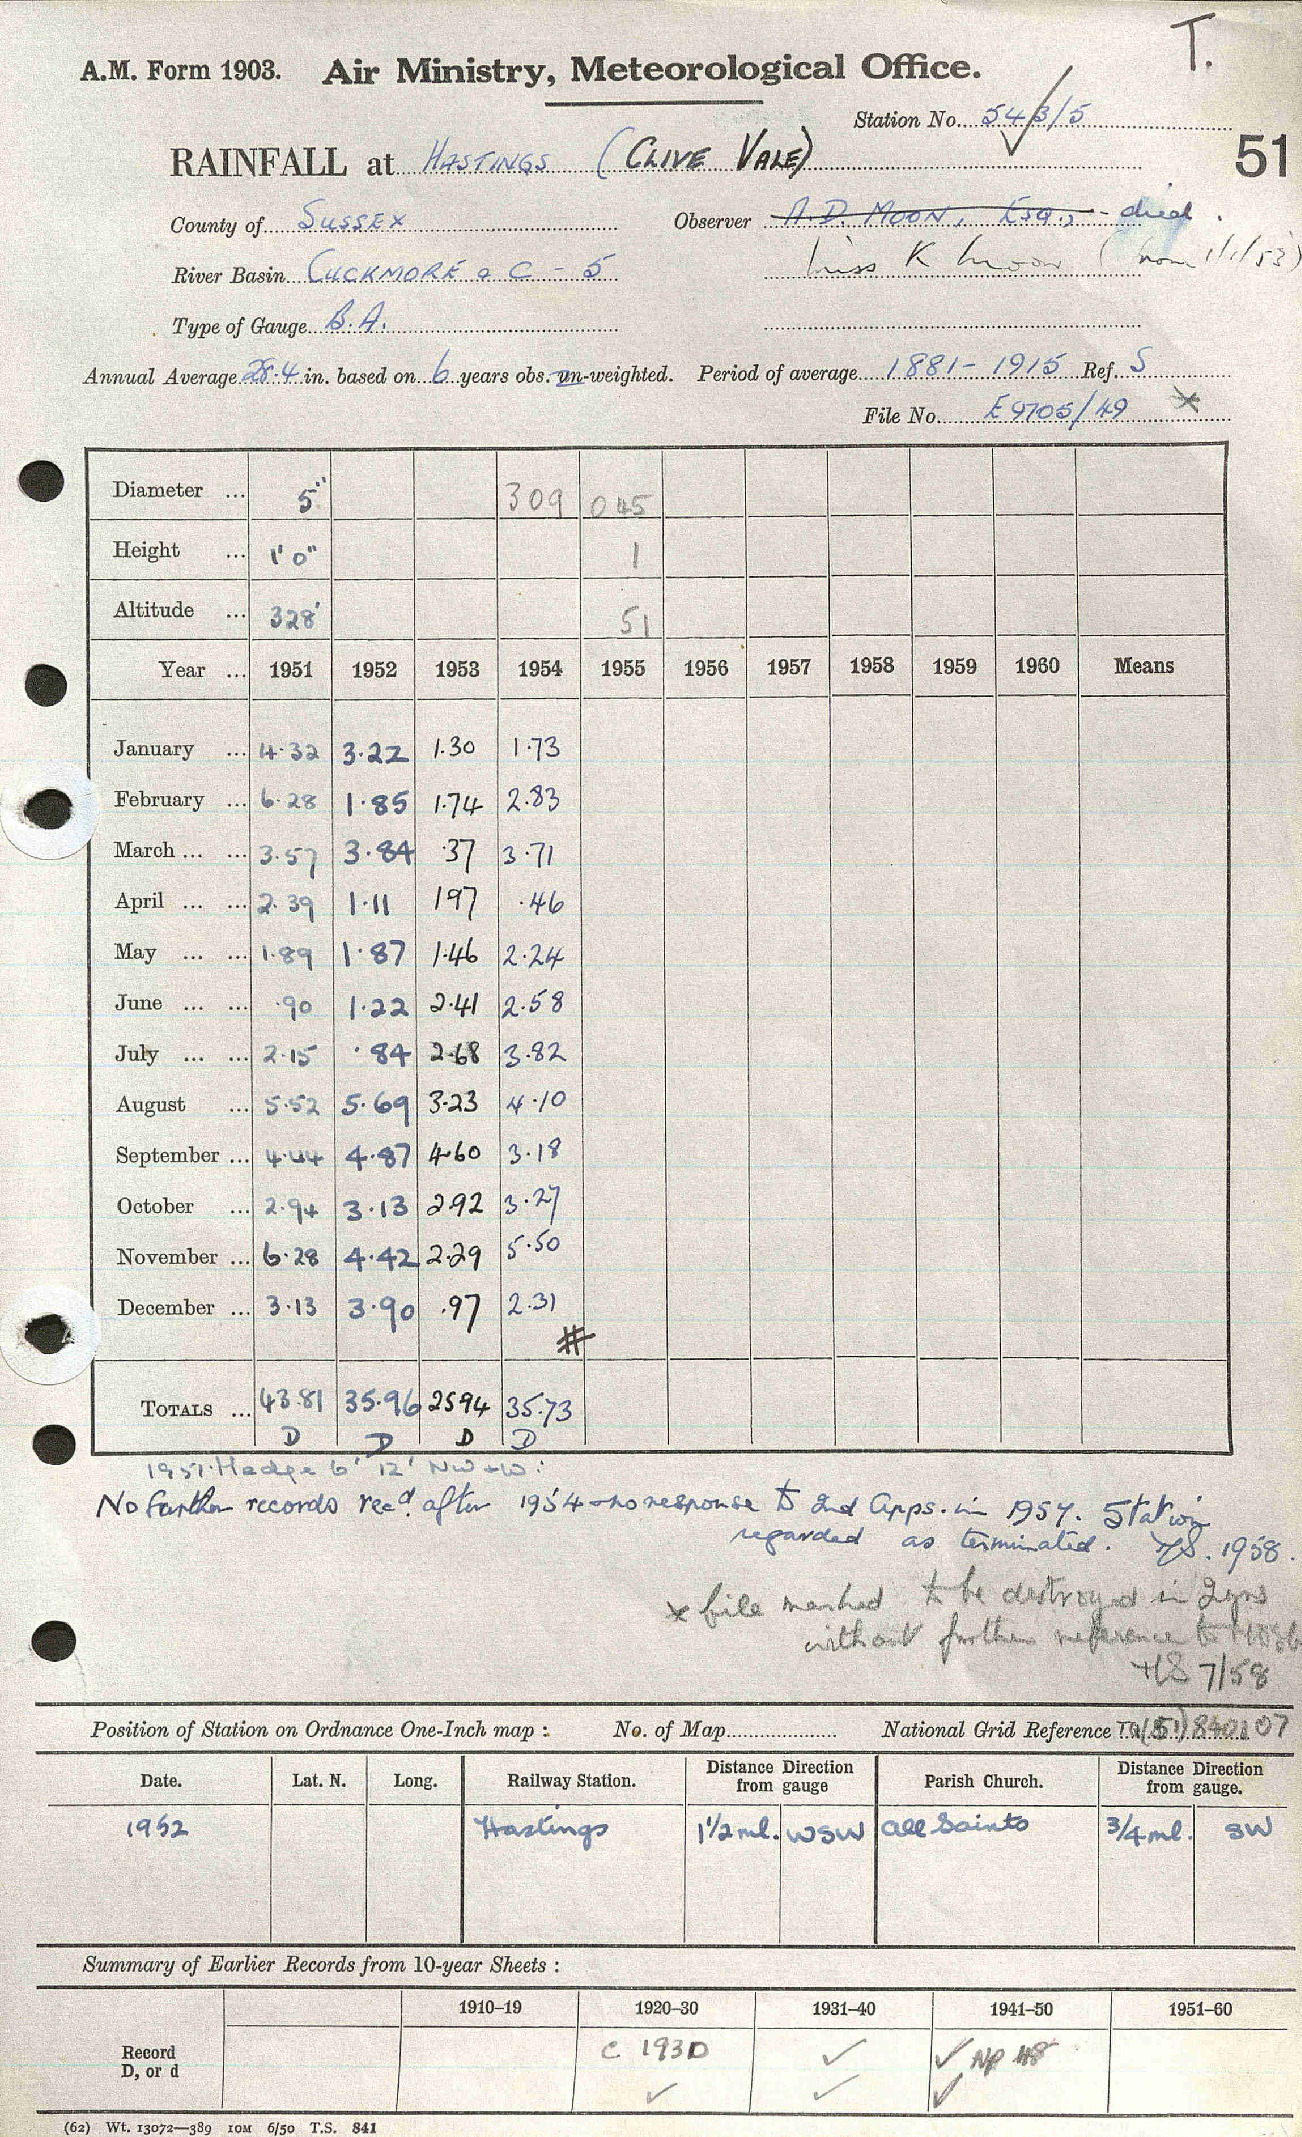 T.
A.M. Form 1903. Air Ministry, Meteorological Office.
Station No. 543/5
51
RAINFALL at HASTINGS (CLIVE VALE)
County of SUSSEX Observer A.D. MOON, Esq., - died.
River Basin CUCKMORE & C - 5 Miss K Moon (from 1/1/53)
Type of Gauge B.A.
Annual Average 28.4 in. based on 6 years obs. un-weighted. Period of average 1881-1915 Ref. S
File No. E9705/49 *
Diameter ... 5" 309 045
Height ... 1' 0" 1
Altitude ... 328' 51
Year ... 1951 1952 1953 1954 1955 1956 1957 1958 1959 1960 Means
January ... 4.32 3.22 1.30 1.73
February ... 6.28 1.85 1.74 2.83
March ... ... 3.57 3.84 .37 3.71
April ... ... 2.39 1.11 197 .46
May ... ... 1.89 1.87 1.46 2.24
June ... ... .90 1.22 2.41 2.58
July ... ... 2.15 .84 2.68 3.82
August ... 5.52 5.69 3.23 4.10
September ... 4.44 4.87 4.60 3.18
October ... 2.94 3.13 292 3.27
November ... 6.28 4.42 2.29 5.50
December ... 3.13 3.90 .97 2.31
#
TOTALS ... 43.81 35.96 2594 35.73
D D D D
1951. Hedge 6' 12' NW + W.
No further records recd. after 1954 - no response to 2nd Apps. in 1957. Station
regarded as terminated. 1958.
* file marked to be destroyed in 2 yrs
without further reference to
7/58
Position of Station on Ordnance One-Inch map : No. of Map National Grid Reference TQ(51) 07
Date. Lat. N. Long. Railway Station. Distance from gauge Direction Parish Church. Distance from gauge. Direction
1952 Hastings 1 1/2 ml. WSW All Saints 3/4 ml. SW
Summary of Earlier Records from 10-year Sheets :
1910–19 1920–30 1931–40 1941–50 1951–60
Record
D, or d
c 1930 ✓ ✓ NP 48
✓ ✓ ✓
(62) Wt. 13072—389 10M 6/50 T.S. 841